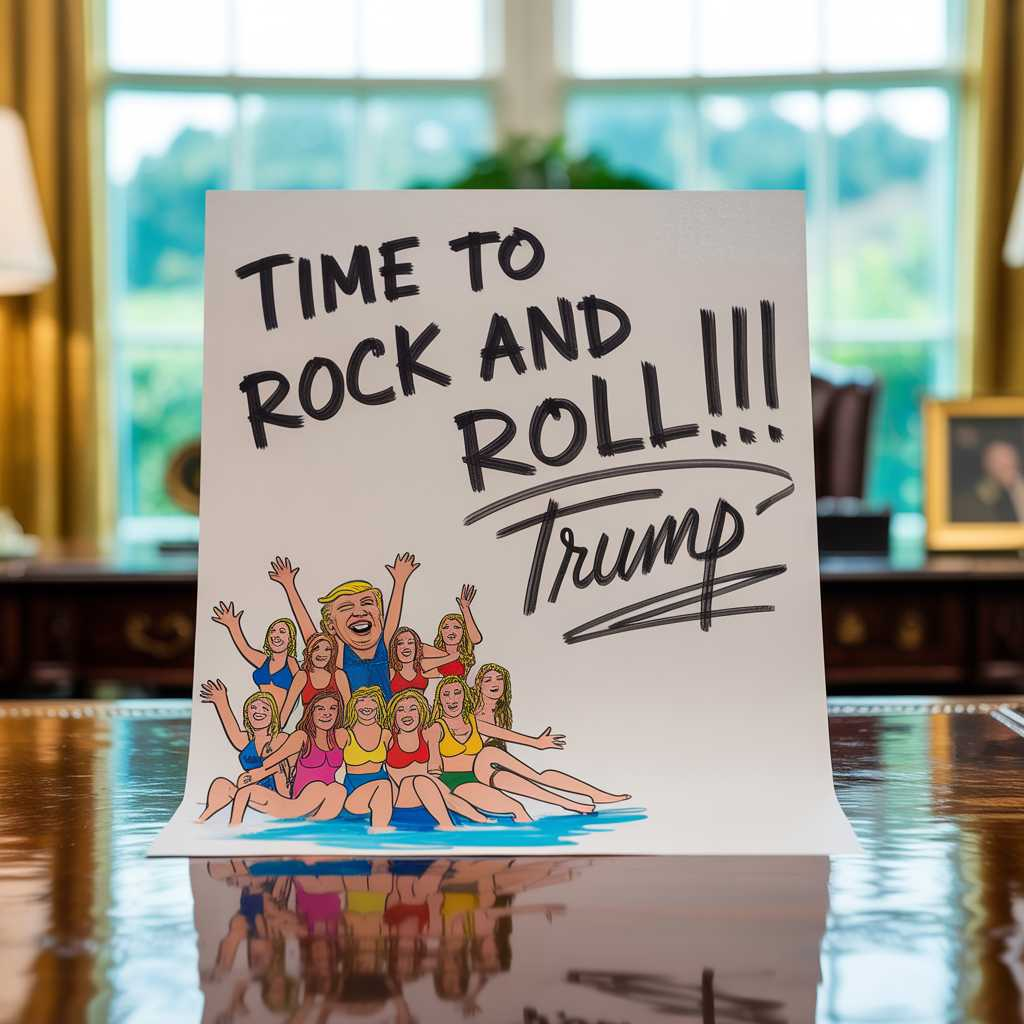 TIME TO
ROCK AND
ROLL!!!
Trump